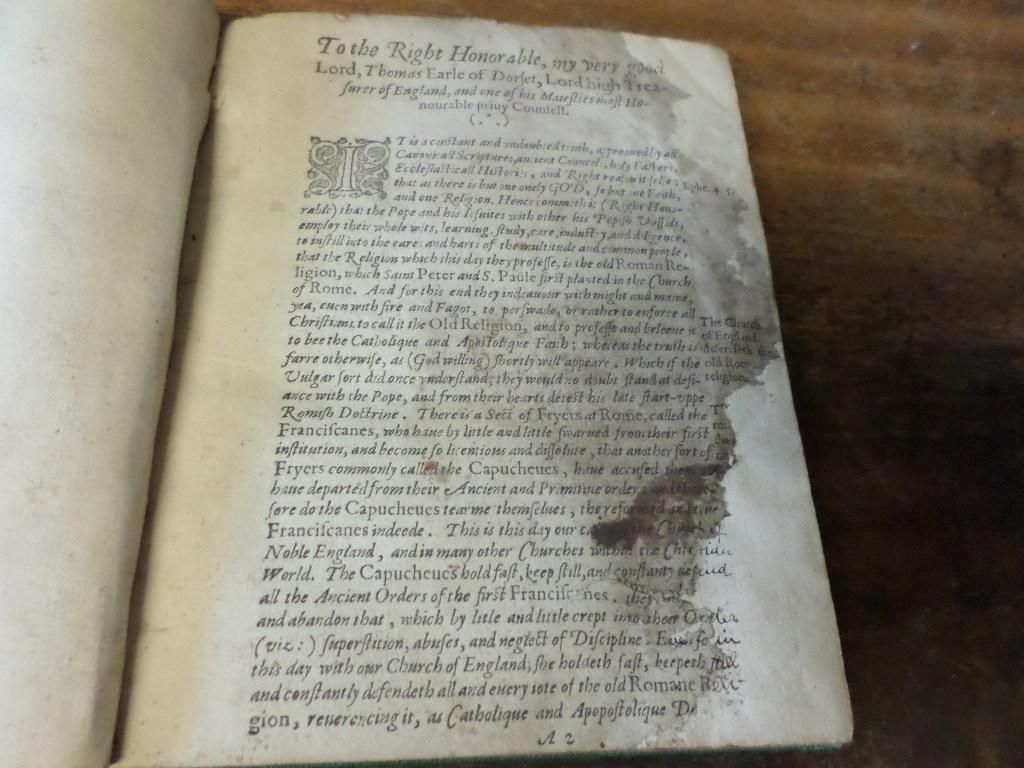 To the Right Honorable, my very good
Lord, Thomas Earle of Dorſet, Lord high Trea-
ſurer of England, and one of his Maieſties moſt Ho-
nourable priuy Counſell.
(∴)
IT is a conſtant and vndoubted truth, approoued by all
Canonicall Scriptures, ancient Councels, holy Fathers,
Eccleſiaſticall Hiſtories, and Right reaſon it ſelfe;
Ephe. 4. 5.
that as there is but one onely GOD, ſo but one Faith,
and one Religion. Hence commeth is (Right Hono-
rable) that the Pope and his Ieſuites with other his Popiſh Vaſſals,
employ their whole wits, learning, ſtudy, care, induſtry, and diligence,
to inſtill into the eares and harts of the multitude and common people,
that the Religion which this day they profeſſe, is the old Roman Re-
ligion, which Saint Peter and S. Paule firſt planted in the Church
of Rome. And for this end they indeauour with might and maine,
yea, euen with fire and Fagot, to perſwade, or rather to enforce all
Chriſtians to call it the Old Religion, and to profeſſe and beleeue it
to bee the Catholique and Apoſtolique Faith; whereas the truth is
farre otherwiſe, as (God willing) ſhortly will appeare. Which if the
Vulgar ſort did once vnderſtand, they would no doubt ſtand at defi-
ance with the Pope, and from their hearts deteſt his late ſtart-vppe
The Church
of England
defendeth the
old Rom
religion.
Romiſh Doctrine. There is a Sect of Fryers at Rome, called the
Franciſcanes, who haue by little and little ſwarued from their firſt
inſtitution, and become ſo licentious and diſſolute, that another ſort of
Fryers commonly called the Capucheues, haue accuſed them
haue departed from their Ancient and Primitiue order, and there-
fore do the Capucheues tearme themſelues, the reformed
Franciſcanes indeede. This is this day our the Church of
Noble England, and in many other Churches within the Chriſtian
World. The Capucheues hold faſt, keep ſtill, and conſtantly defend
all the Ancient Orders of the firſt Franciſcanes, they
and abandon that, which by litle and little crept into their Order
(viz:) ſuperſtition, abuſes, and neglect of Diſcipline. Euen ſo in
this day with our Church of England, ſhe holdeth faſt, keepeth ſtill
and conſtantly defendeth all and euery iote of the old Romane Reli-
gion, reuerencing it, as Catholique and Apopoſtolique
A 2